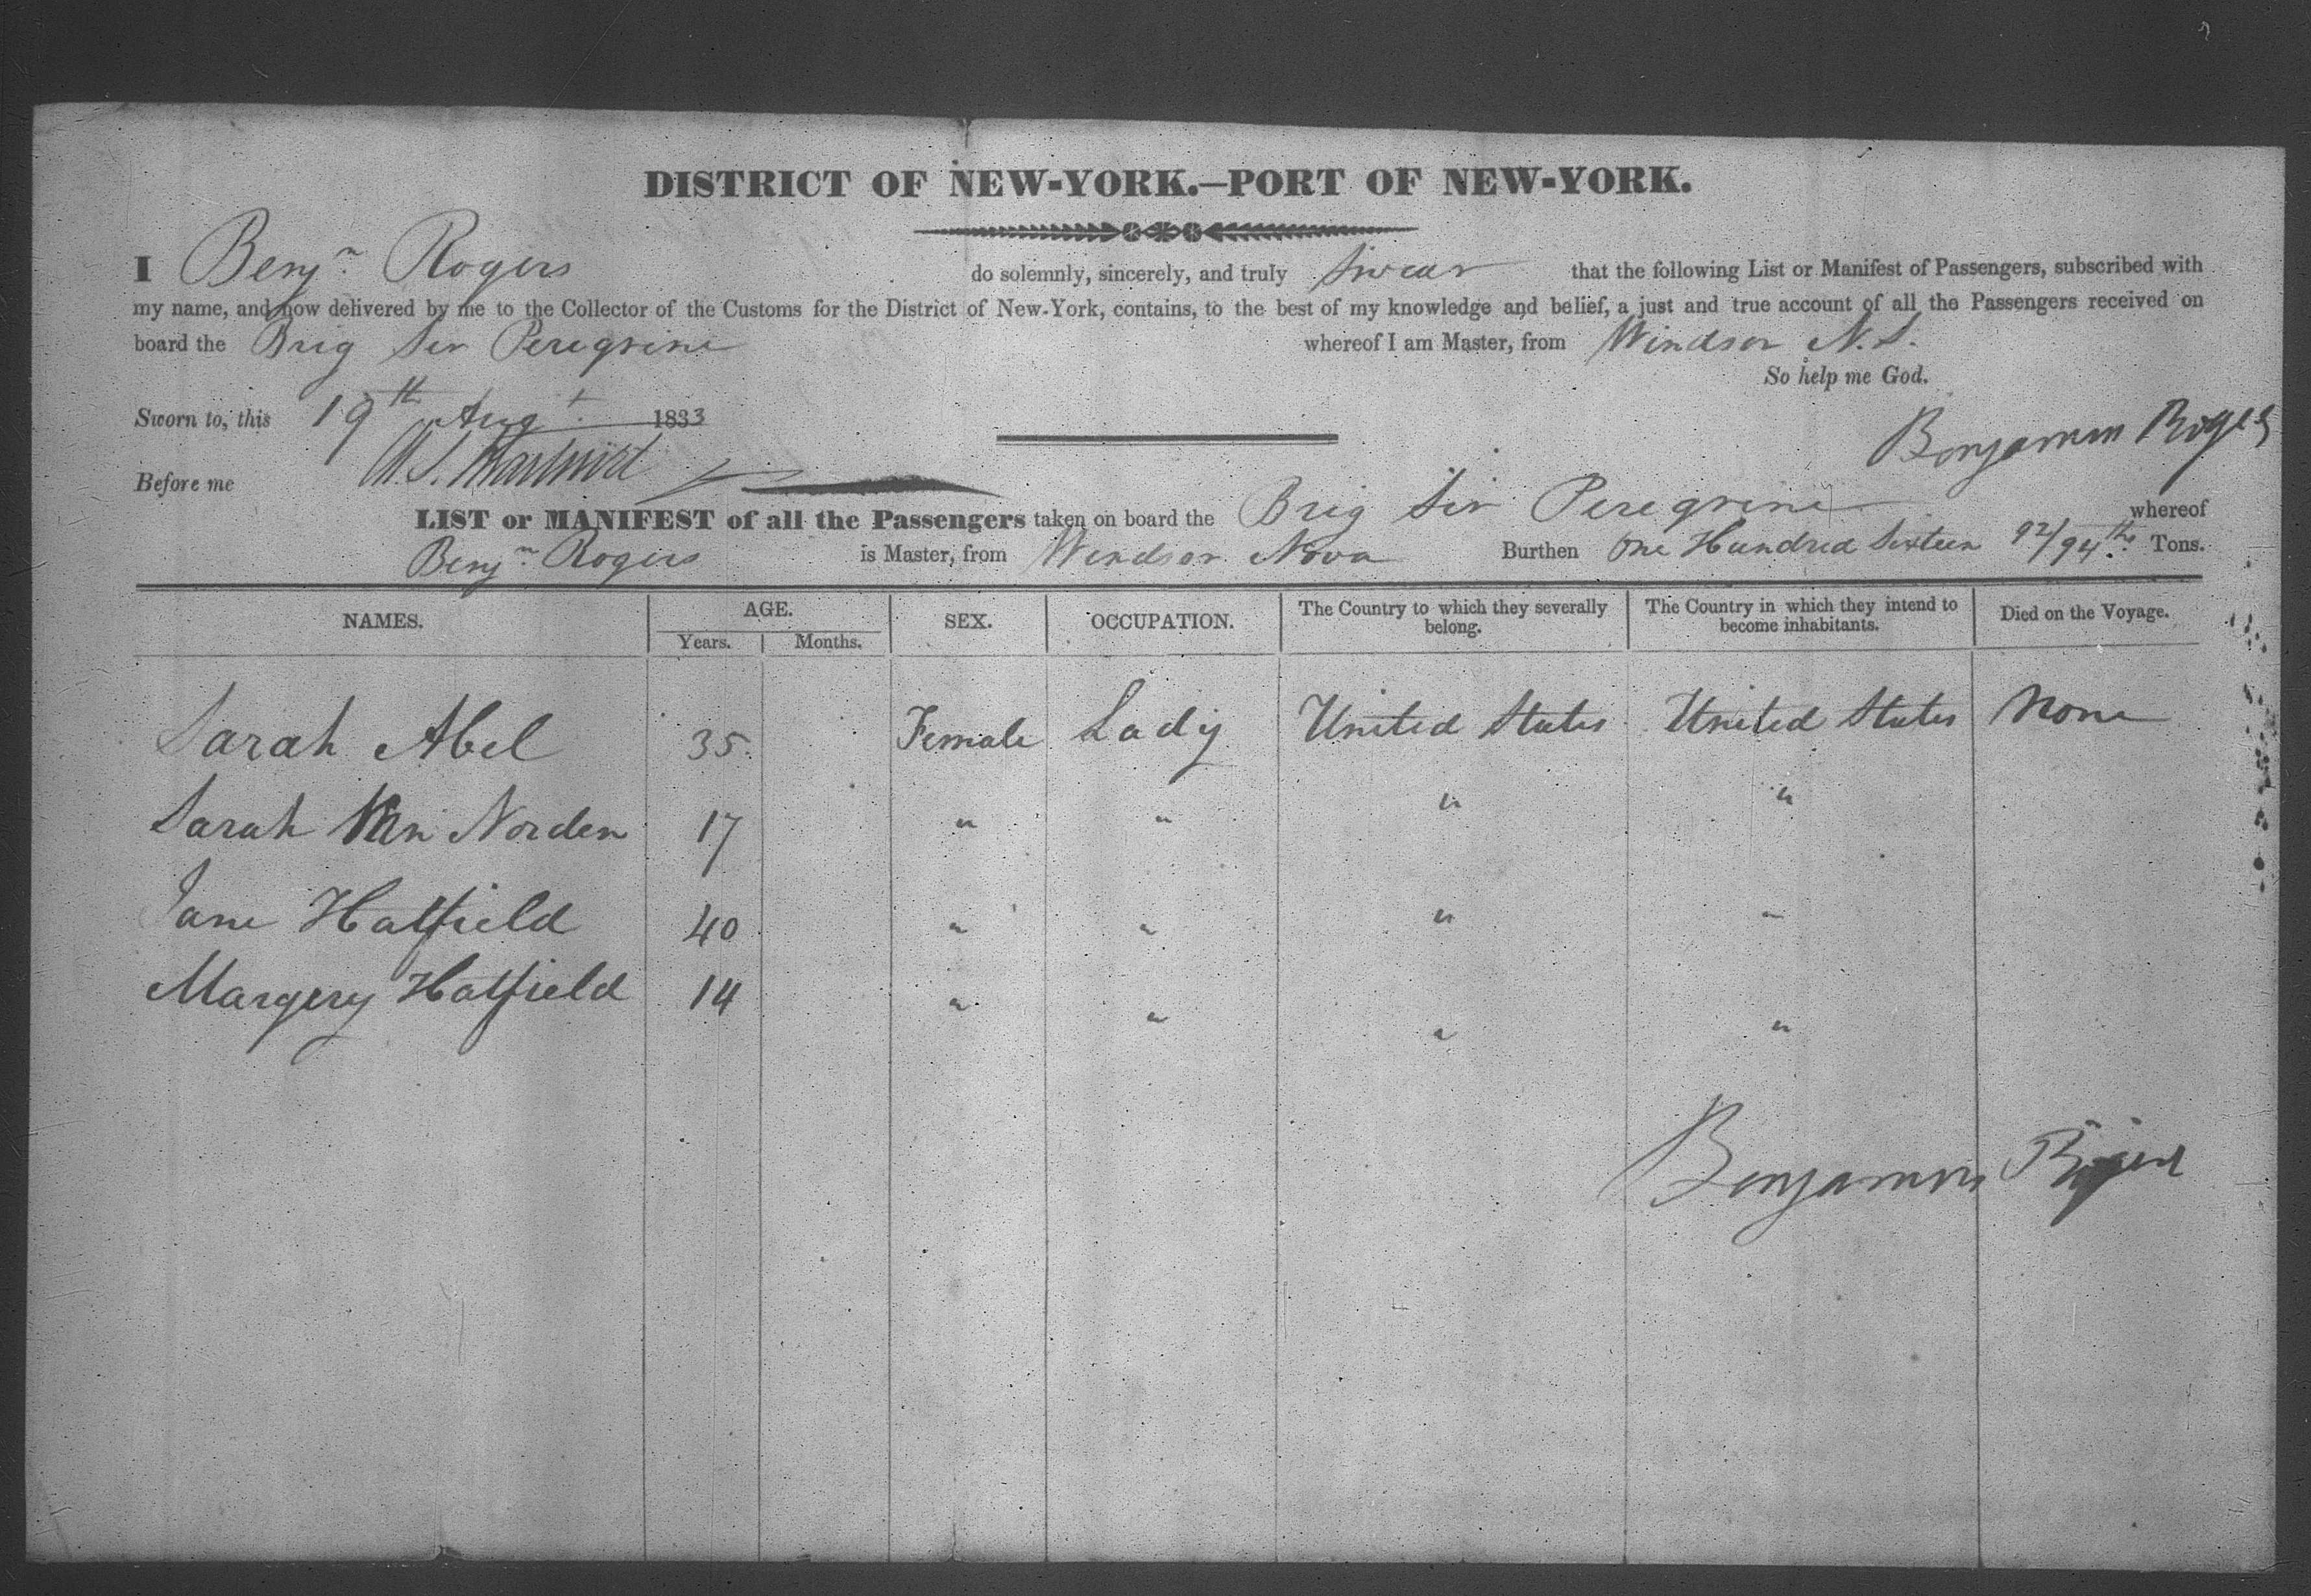 DISTRICT OF NEW-YORK.—PORT OF NEW-YORK.
I Benjn. Rogers do solemnly, sincerely, and truly swear that the following List or Manifest of Passengers, subscribed with
my name, and now delivered by me to the Collector of the Customs for the District of New-York, contains, to the best of my knowledge and belief, a just and true account of all the Passengers received on
board the Brig Sir Peregrine whereof I am Master, from Windsor N.S.
So help me God.
Sworn to, this 19th Augt. 1833
Benjamin Rogers
Before me
LIST or MANIFEST of all the Passengers taken on board the Brig Sir Peregrine whereof
Benjn Rogers is Master, from Windsor Nova Burthen One Hundred Sixteen 92/94ths Tons.
NAMES. AGE. SEX. OCCUPATION. The Country to which they severally belong. The Country in which they intend to become inhabitants. Died on the Voyage.
Years. Months.
Sarah Abel 35 Female Lady United States United States None
Sarah Van Norden 17 " " " "
Jane Hatfield 40 " " " "
Margery Hatfield 14 " " " "
Benjamin Rogers